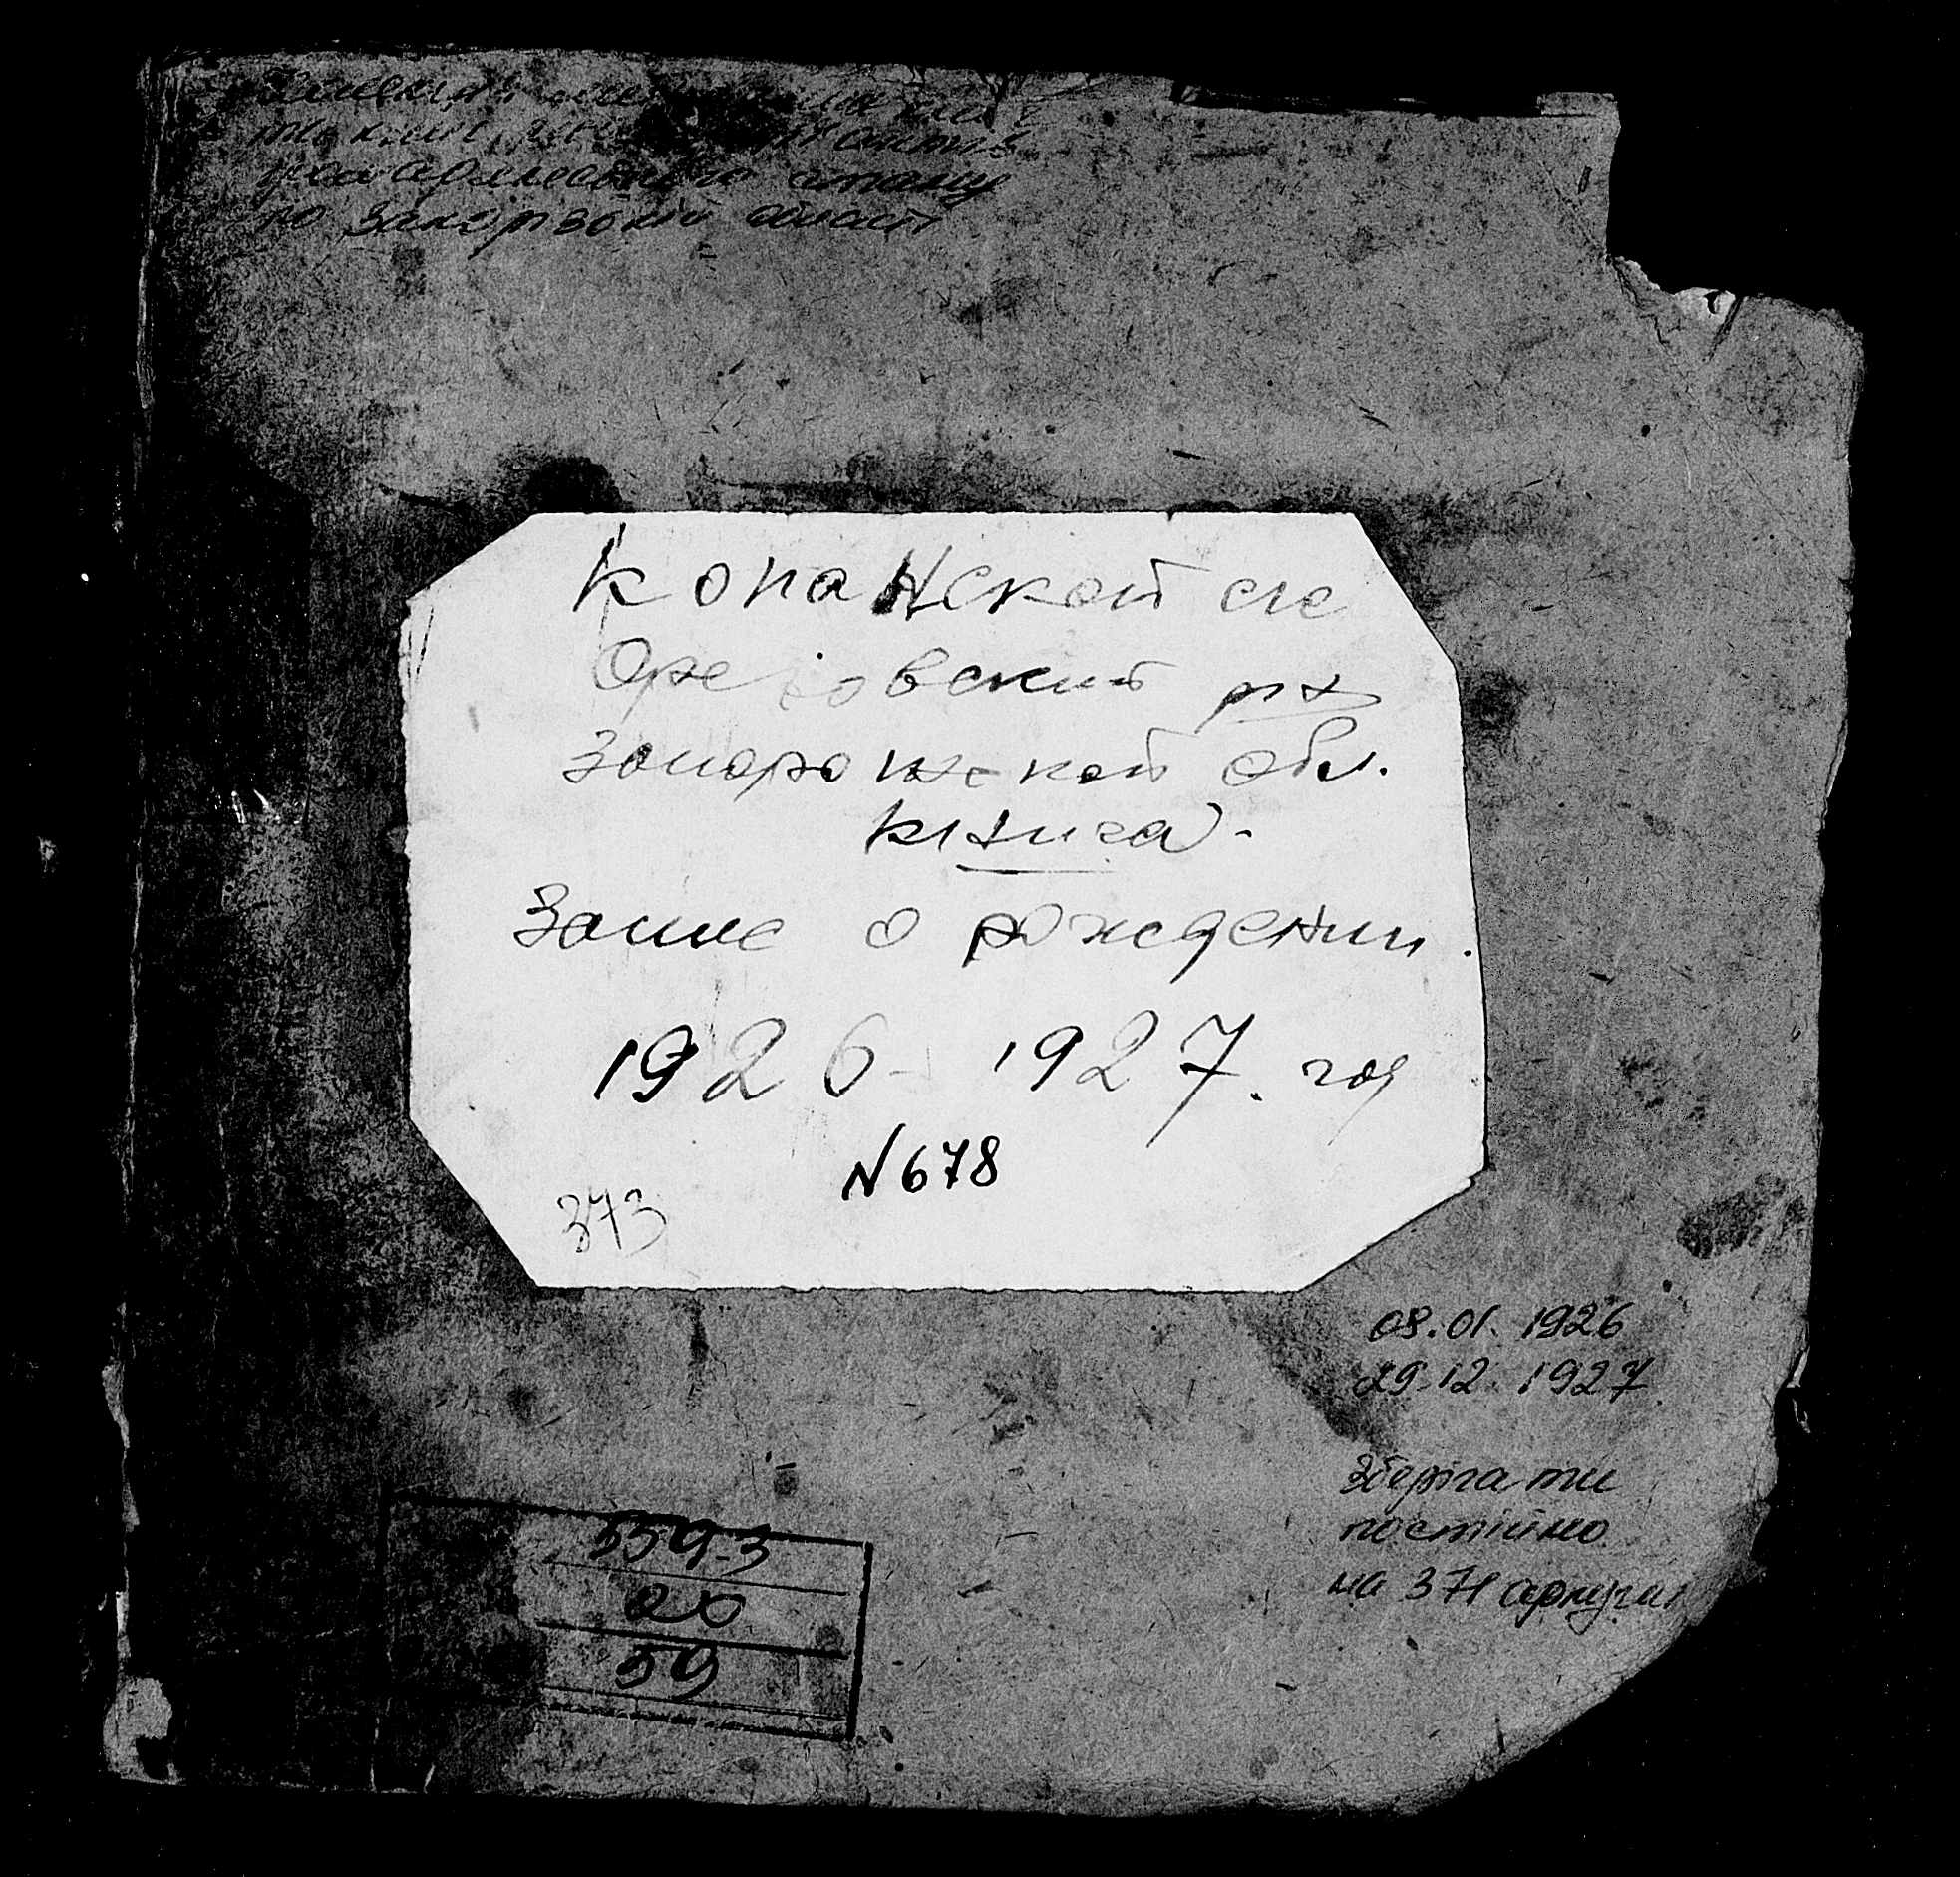 по Запорізькій області
Копанской с/с
Ореховский р-н
Запорожской обл.
книга
Запис о рождении.
1926- 1927. год
N678
373
08.01.1926
29.12.1927
Зберігати
постійно
на 371 аркушах
5593
20
59